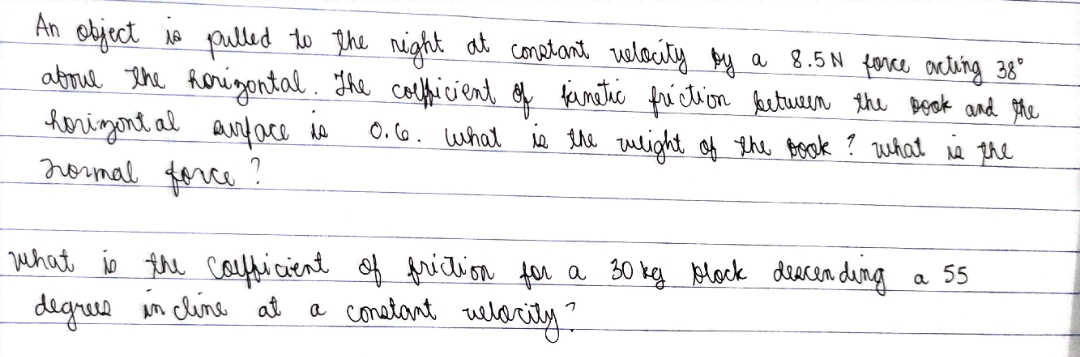 An object is pulled to the right at constant velocity by a 8.5N force acting 38°
above the horizontal. The coefficient of kinetic friction between the book and the
horizontal surface is 0.6. What is the weight of the book? What is the
normal force?
What is the coefficient of friction for a 30 kg block descending a 55
degrees incline at a constant velocity?